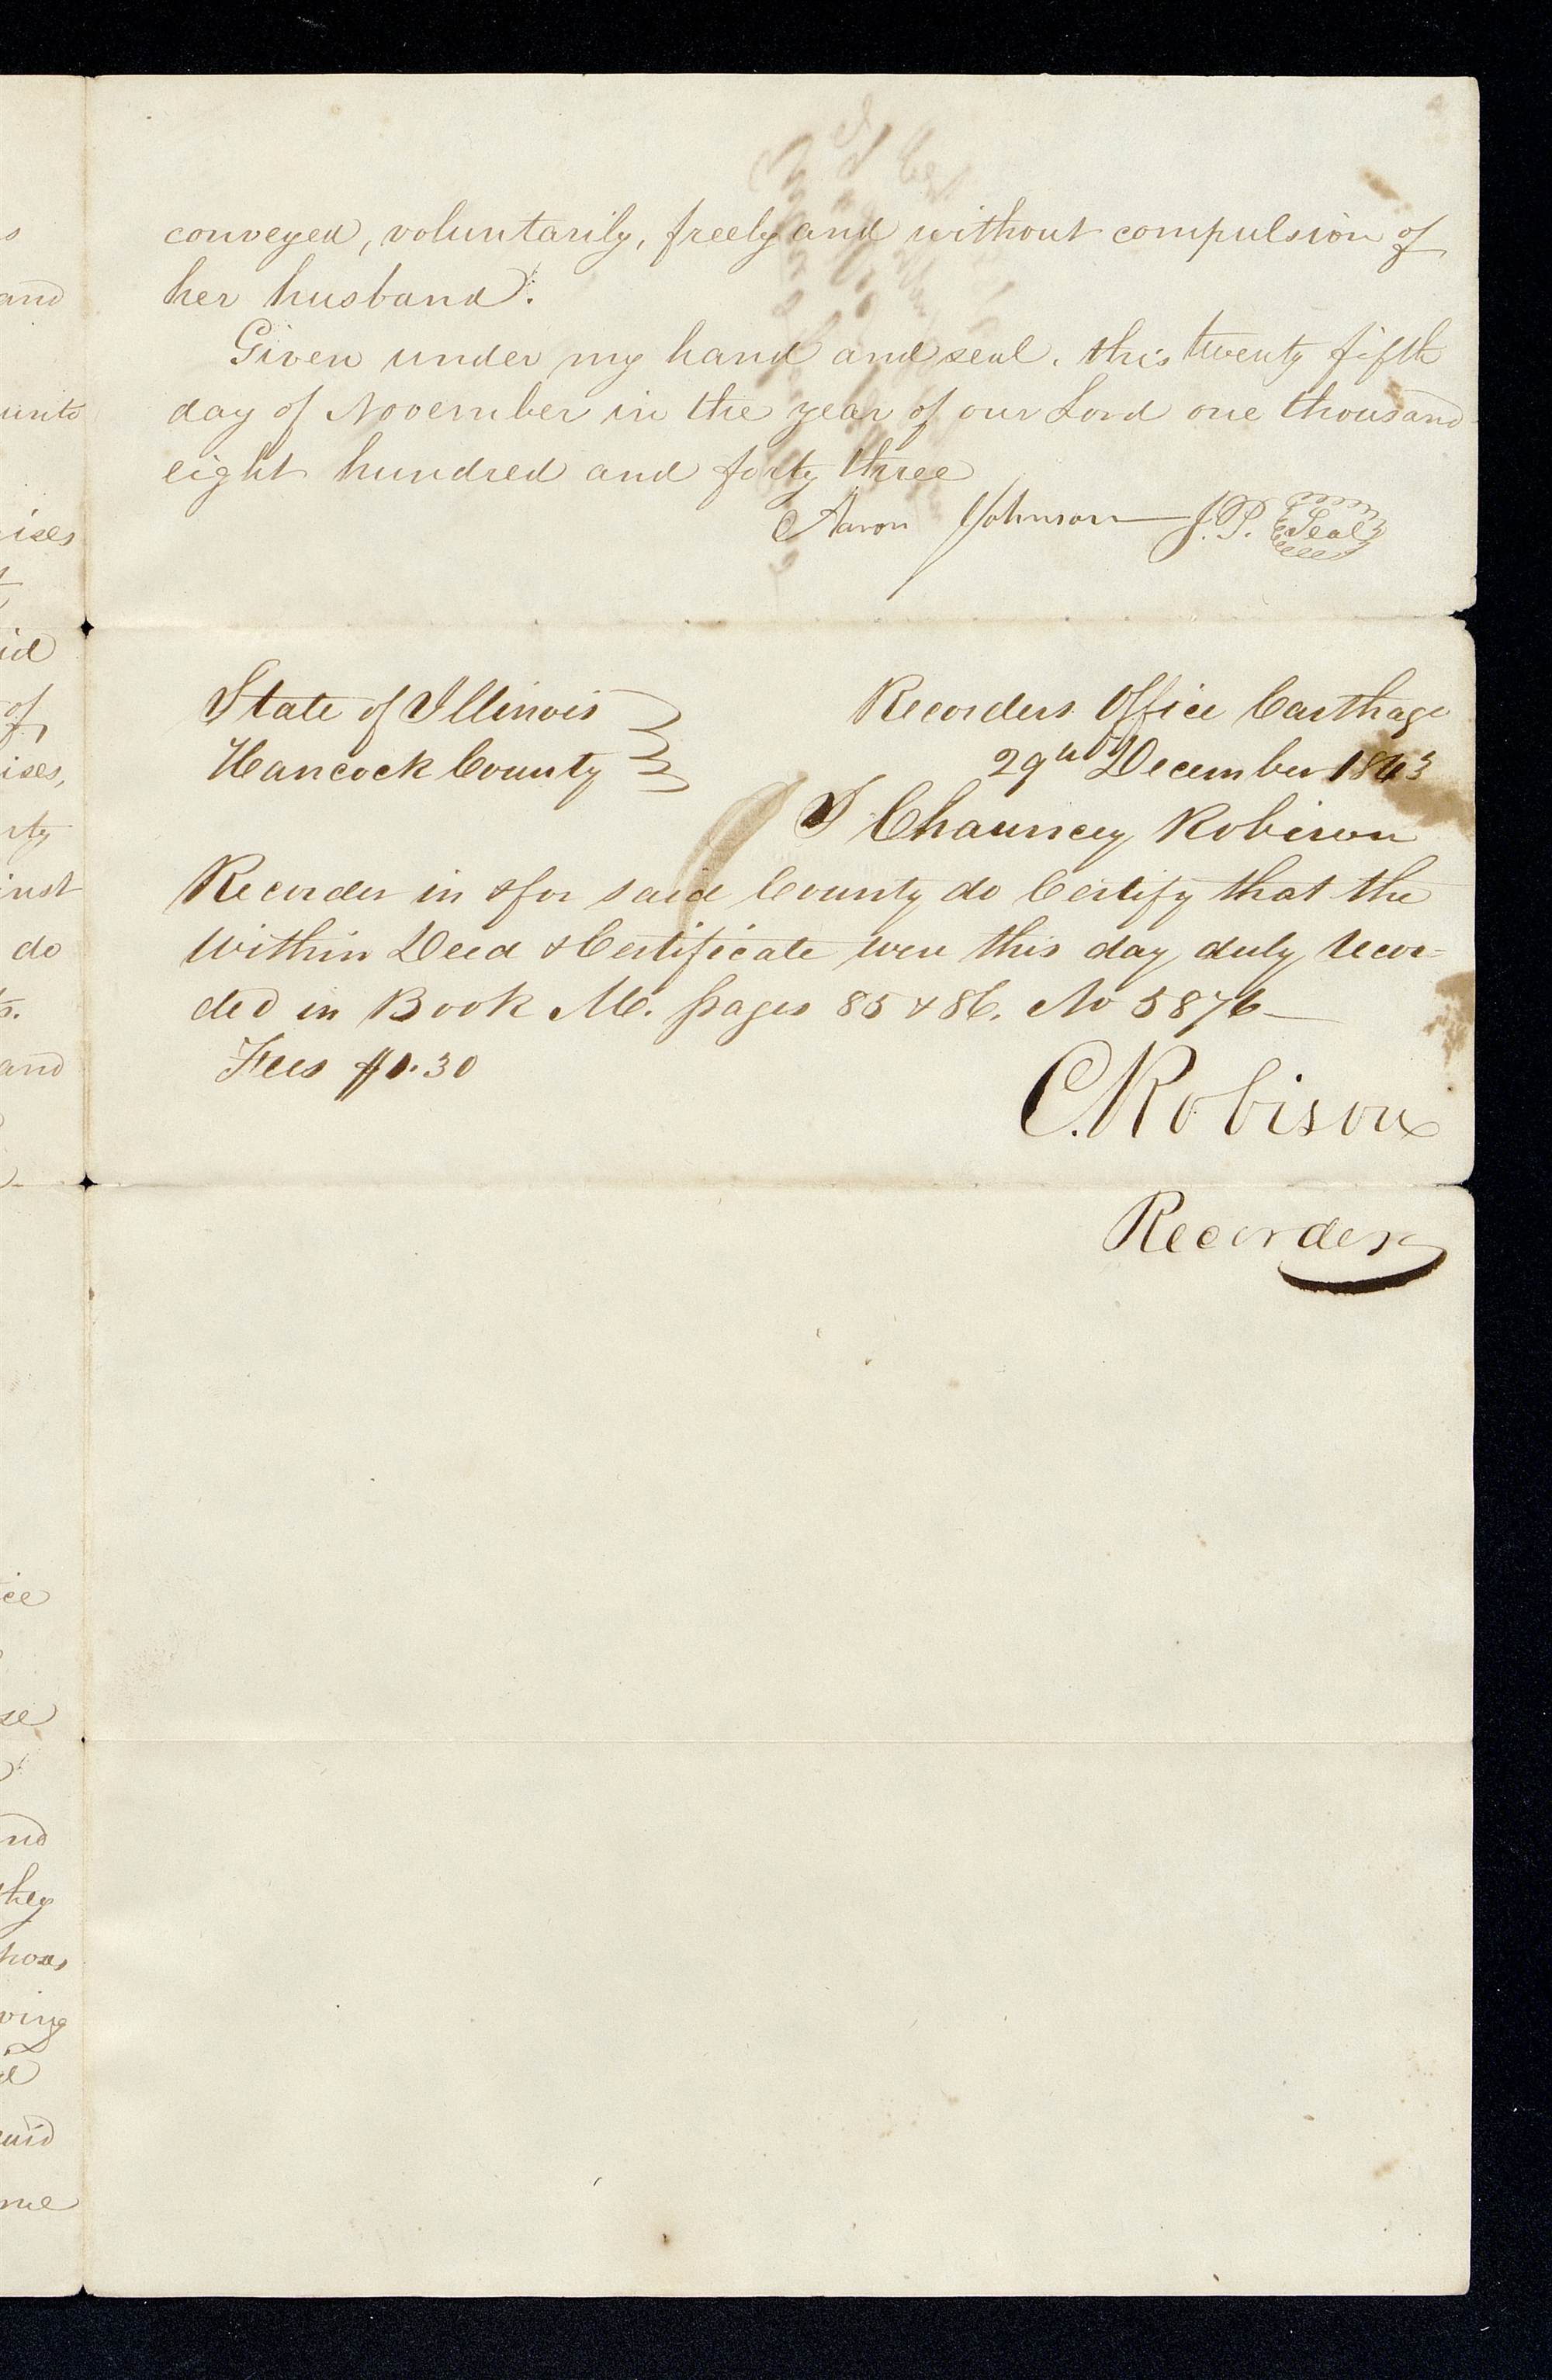 conveyed, voluntarily, freely and without compulsion of
her husband.
Given under my hand and seal. this twenty fifth
day of November in the year of our Lord one thousand
eight hundred and forty three
Aaron Johnson J.P. Seal
State of Illinois
Hancock County
Recorders Office Carthage
29th December 1843
I Chauncey Robison
Recorder in & for said County do Certify that the
within Deed & Certificate were this day duly Recor=
ded in Book M. pages 85 & 86. No 5876
Fees $0.30
C. Robison
Recorder
and
unto
ises
id
of
ises,
rty
inst
do
and
ice
se
nd
they
ving
said
me